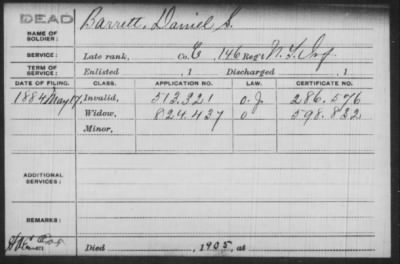 DEAD
NAME OF SOLDIER: Barrett, Daniel S.
SERVICE: Late rank, Co. E, 146 Reg't N.Y. Inf
TERM OF SERVICE: Enlisted , 1 Discharged , 1
DATE OF FILING. CLASS. APPLICATION NO. LAW. CERTIFICATE NO.
1884 May 17, Invalid, 513.321 O.J. 286.576
Widow, 824.437 O 598.822
Minor,
ADDITIONAL SERVICES:
REMARKS:
Died , 1905, at